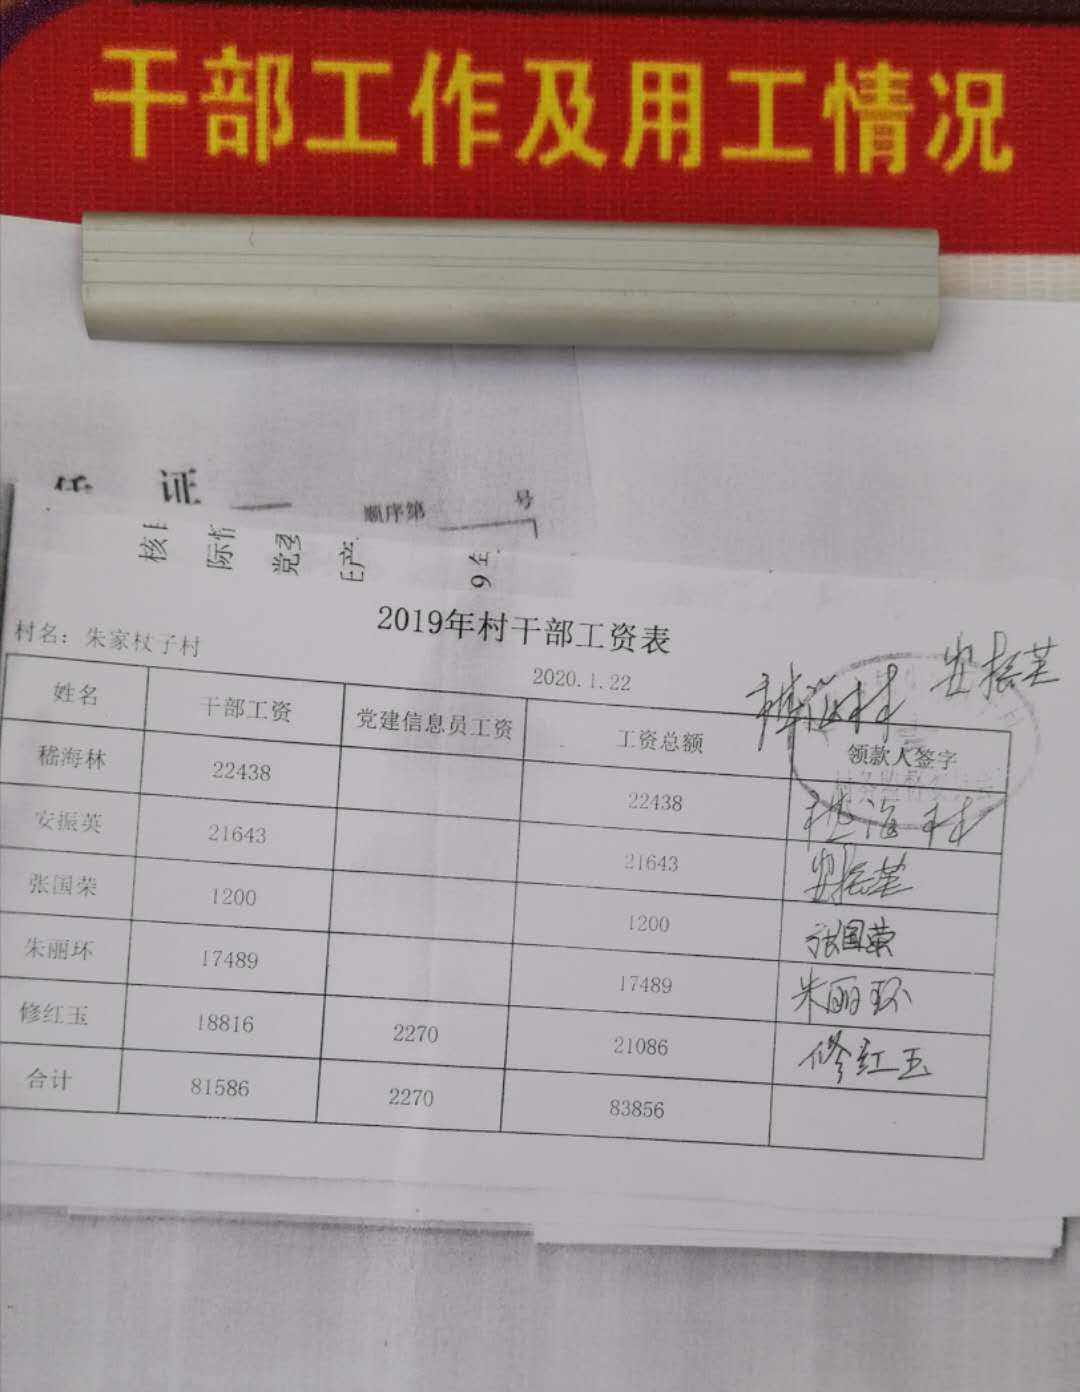 干部工作及用工情况
证
顺序第 号
2019年村干部工资表
村名：朱家杖子村
2020.1.22
嵇海林 安振英
姓名 干部工资 党建信息员工资 工资总额 领款人签字
嵇海林 22438 22438 嵇海林
安振英 21643 21643 安振英
张国荣 1200 1200 张国荣
朱丽环 17489 17489 朱丽环
修红玉 18816 2270 21086 修红玉
合计 81586 2270 83856